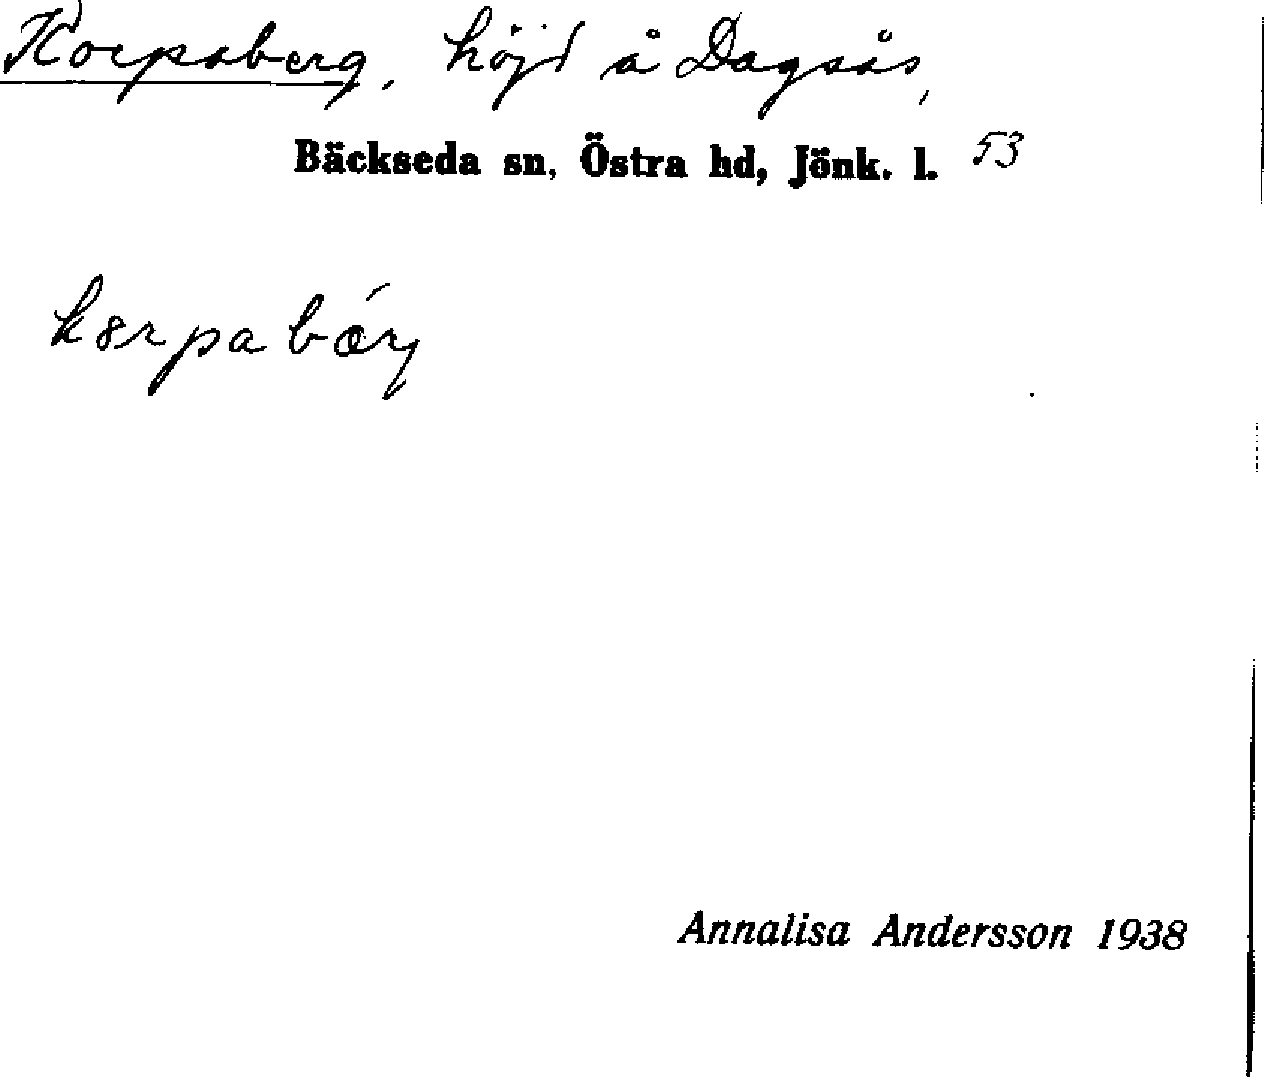 Korpaberg, höjd å Dagsås,
Bäckseda sn, Östra hd, Jönk. l. 53
k8rpabærj
Annalisa Andersson 1938